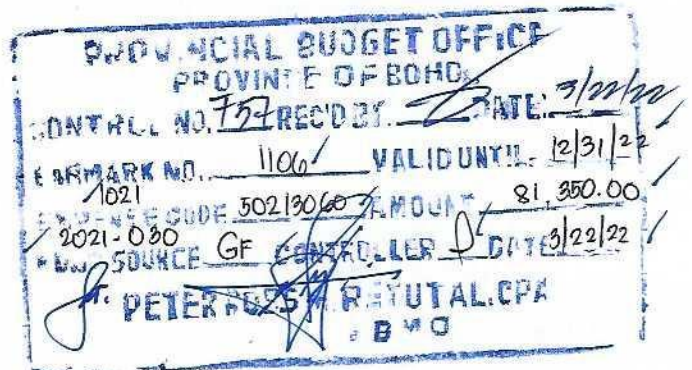 PROVINCIAL BUDGET OFFICE
PROVINCE OF BOHOL
CONTROL NO. 757 REC'D BY. DATE: 3/22/22
EARMARK NO. 1106 VALID UNTIL. 12/31/22
1021
EXPENSE CODE 50213060 AMOUNT 81,350.00
2021-030
FUND SOURCE GF CONTROLLER DATE 3/22/22
PETER ROSS RETUTAL.CPA
PBMO